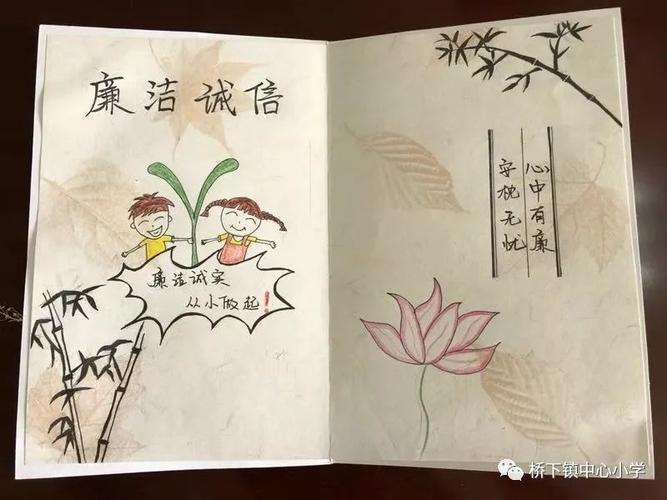 廉洁诚信
廉洁诚实
从小做起
心中有廉
安枕无忧
桥下镇中心小学